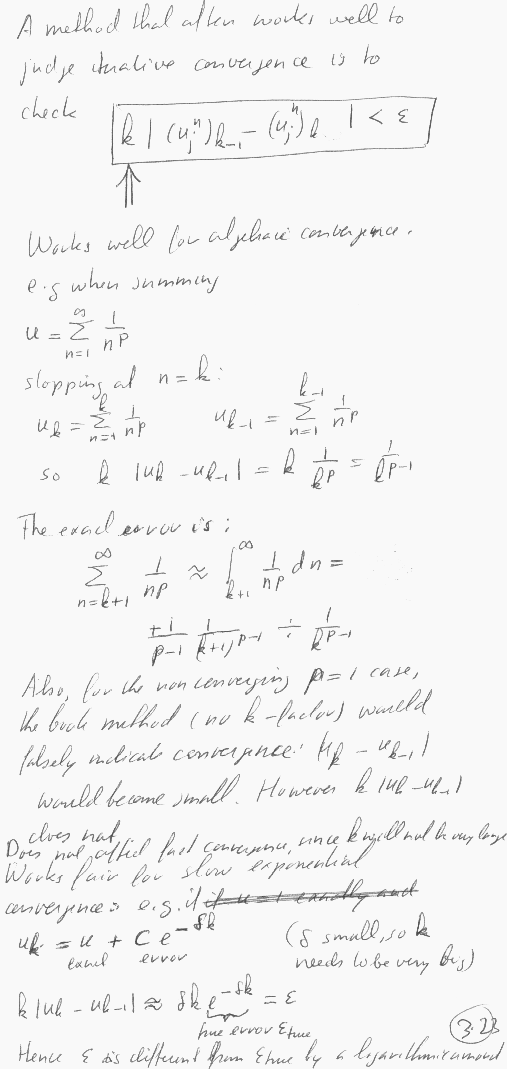 A method that often works well to
judge iterative convergence is to
check k | (u_j^n)_{k-1} - (u_j^n)_k | < ε
Works well for algebraic convergence.
e.g when summing
u = Σ_{n=1}^{∞} 1/n^p
stopping at n = k:
u_k = Σ_{n=1}^{k} 1/n^p   u_{k-1} = Σ_{n=1}^{k-1} 1/n^p
so k |u_k - u_{k-1}| = k 1/k^p = 1/k^{p-1}
The exact error is:
Σ_{n=k+1}^{∞} 1/n^p ≈ ∫_{k+1}^{∞} 1/n^p dn =
+1/(p-1) 1/(k+1)^{p-1} ÷ 1/k^{p-1}
Also, for the non converging p=1 case,
the book method (no k-factor) would
falsely indicate convergence: |u_k - u_{k-1}|
would become small. However k |u_k - u_{k-1}|
does not
Does not affect fast convergence, since k will not be very large
Works fair for slow exponential
convergence: e.g. if
u_k = u + C e^{-δk} (δ small, so k
exact error needs to be very big)
k |u_k - u_{k-1}| ≈ δk e^{-δk} = ε
true error ε_true
3.23
Hence ε is different from ε_true by a logarithmic amount